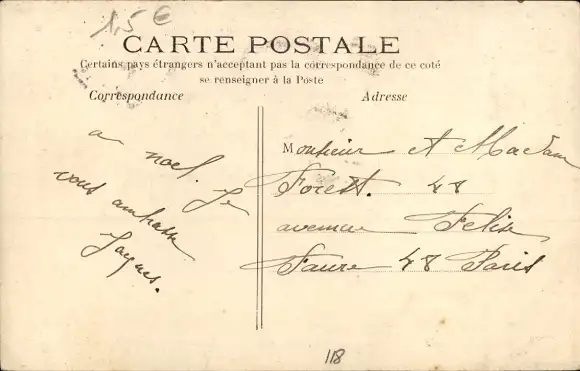 1,5 €
CARTE POSTALE
Certains pays étrangers n'acceptant pas la correspondance de ce coté
se renseigner à la Poste
Correspondance
a noel. Je
vous ambrasse
Jaques.
Adresse
Monsieur et Madam
Forest. 48
avenue Felix
Faure 48 Paris
118